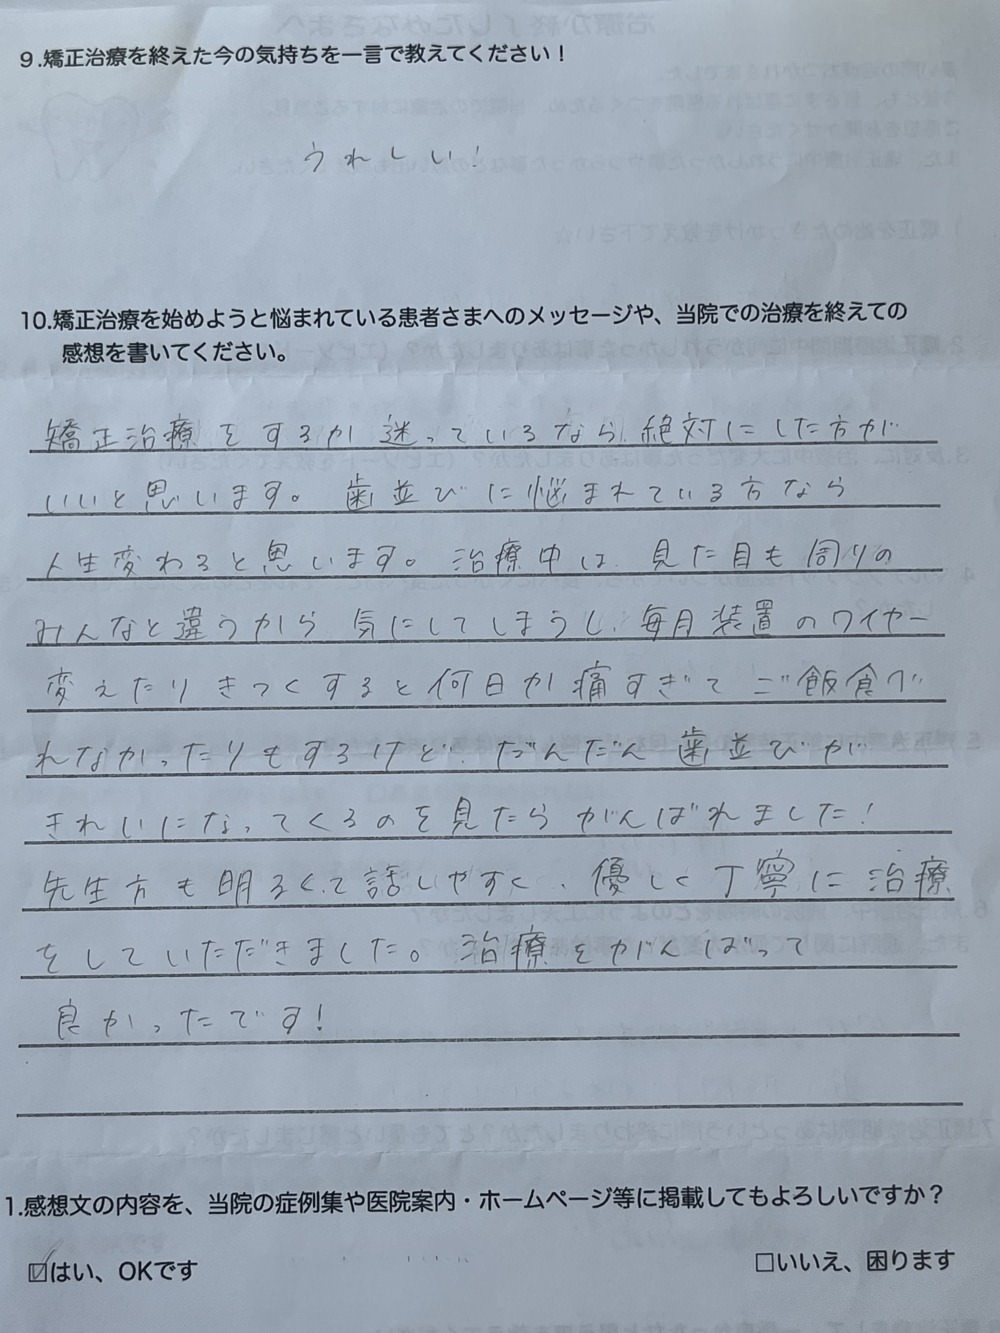 9.矯正治療を終えた今の気持ちを一言で教えてください！
うれしい！
10.矯正治療を始めようと悩まれている患者さまへのメッセージや、当院での治療を終えての
感想を書いてください。
矯正治療をするか迷っているなら、絶対にした方が
いいと思います。歯並びに悩まれている方なら
人生変わると思います。治療中は、見た目も周りの
みんなと違うから気にしてしまうし、毎月装置のワイヤー
変えたりきつくすると何日か痛すぎてご飯食べ
れなかったりもするけど、だんだん歯並びが
きれいになってくるのを見たらがんばれました！
先生方も明るくて話しやすく、優しく丁寧に治療
をしていただきました。治療をがんばって
良かったです！
1.感想文の内容を、当院の症例集や医院案内・ホームページ等に掲載してもよろしいですか？
☑はい、OKです
□いいえ、困ります